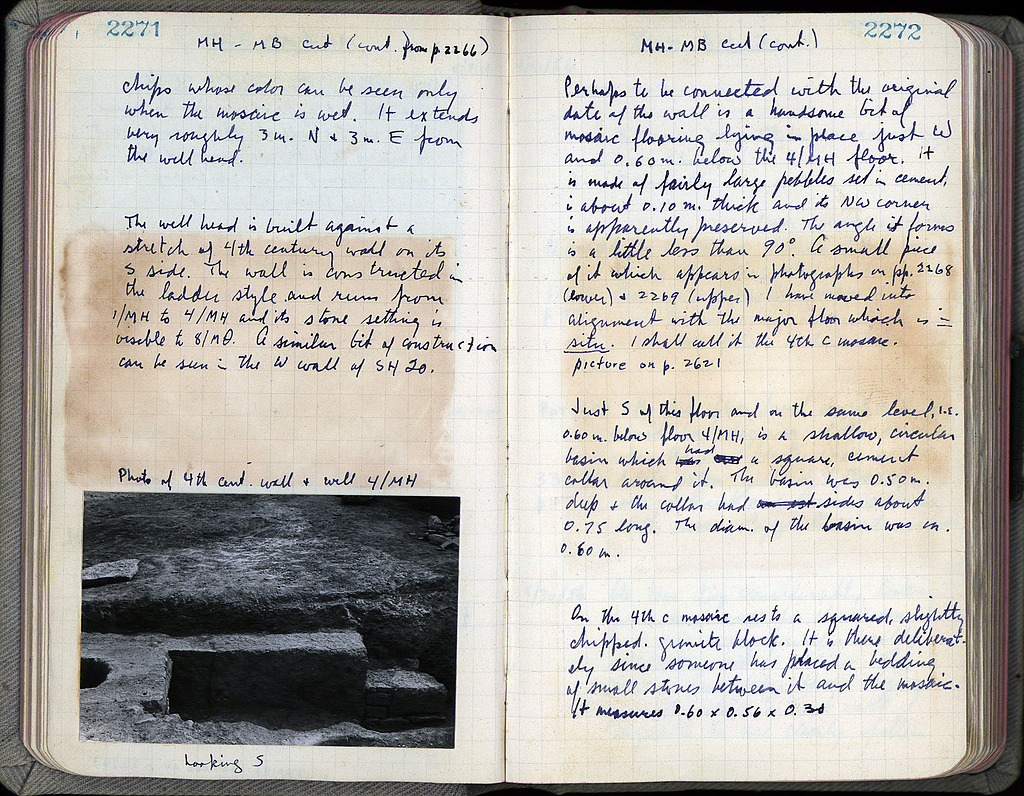 2271
MH - MB cut (cont. from p. 2266)
chips whose color can be seen only
when the mosaic is wet. It extends
very roughly 3 m. N & 3 m. E from
the well head.
The well head is built against a
stretch of 4th century wall on its
S side. The wall is constructed in
the ladder style and runs from
1/MH to 4/MH and its stone setting is
visible to 8/MΘ. A similar bit of construction
can be seen in the W wall of SH 20.
Photo of 4th cent. wall & well 4/MH
Looking S
2272
MH-MB cut (cont.)
Perhaps to be connected with the original
date of the wall is a handsome bit of
mosaic flooring lying in place just W
and 0.60 m. below the 4/MH floor. It
is made of fairly large pebbles set in cement,
is about 0.10 m. thick and its NW corner
is apparently preserved. The angle it forms
is a little less than 90°. A small piece
of it which appears in photographs on pp. 2268
(lower) & 2269 (upper) I have moved into
alignment with the major floor which is in
situ. I shall call it the 4th c mosaic.
picture on p. 2621
Just S of this floor and on the same level, i.e.
0.60 m. below floor 4/MH, is a shallow, circular
basin which had a square, cement
collar around it. The basin was 0.50 m.
deep & the collar had sides about
0.75 long. The diam. of the basin was ca.
0.60 m.
On the 4th c mosaic rests a squared, slightly
chipped, granite block. It is there deliberat-
ely since someone has placed a bedding
of small stones between it and the mosaic.
It measures 0.60 x 0.56 x 0.30